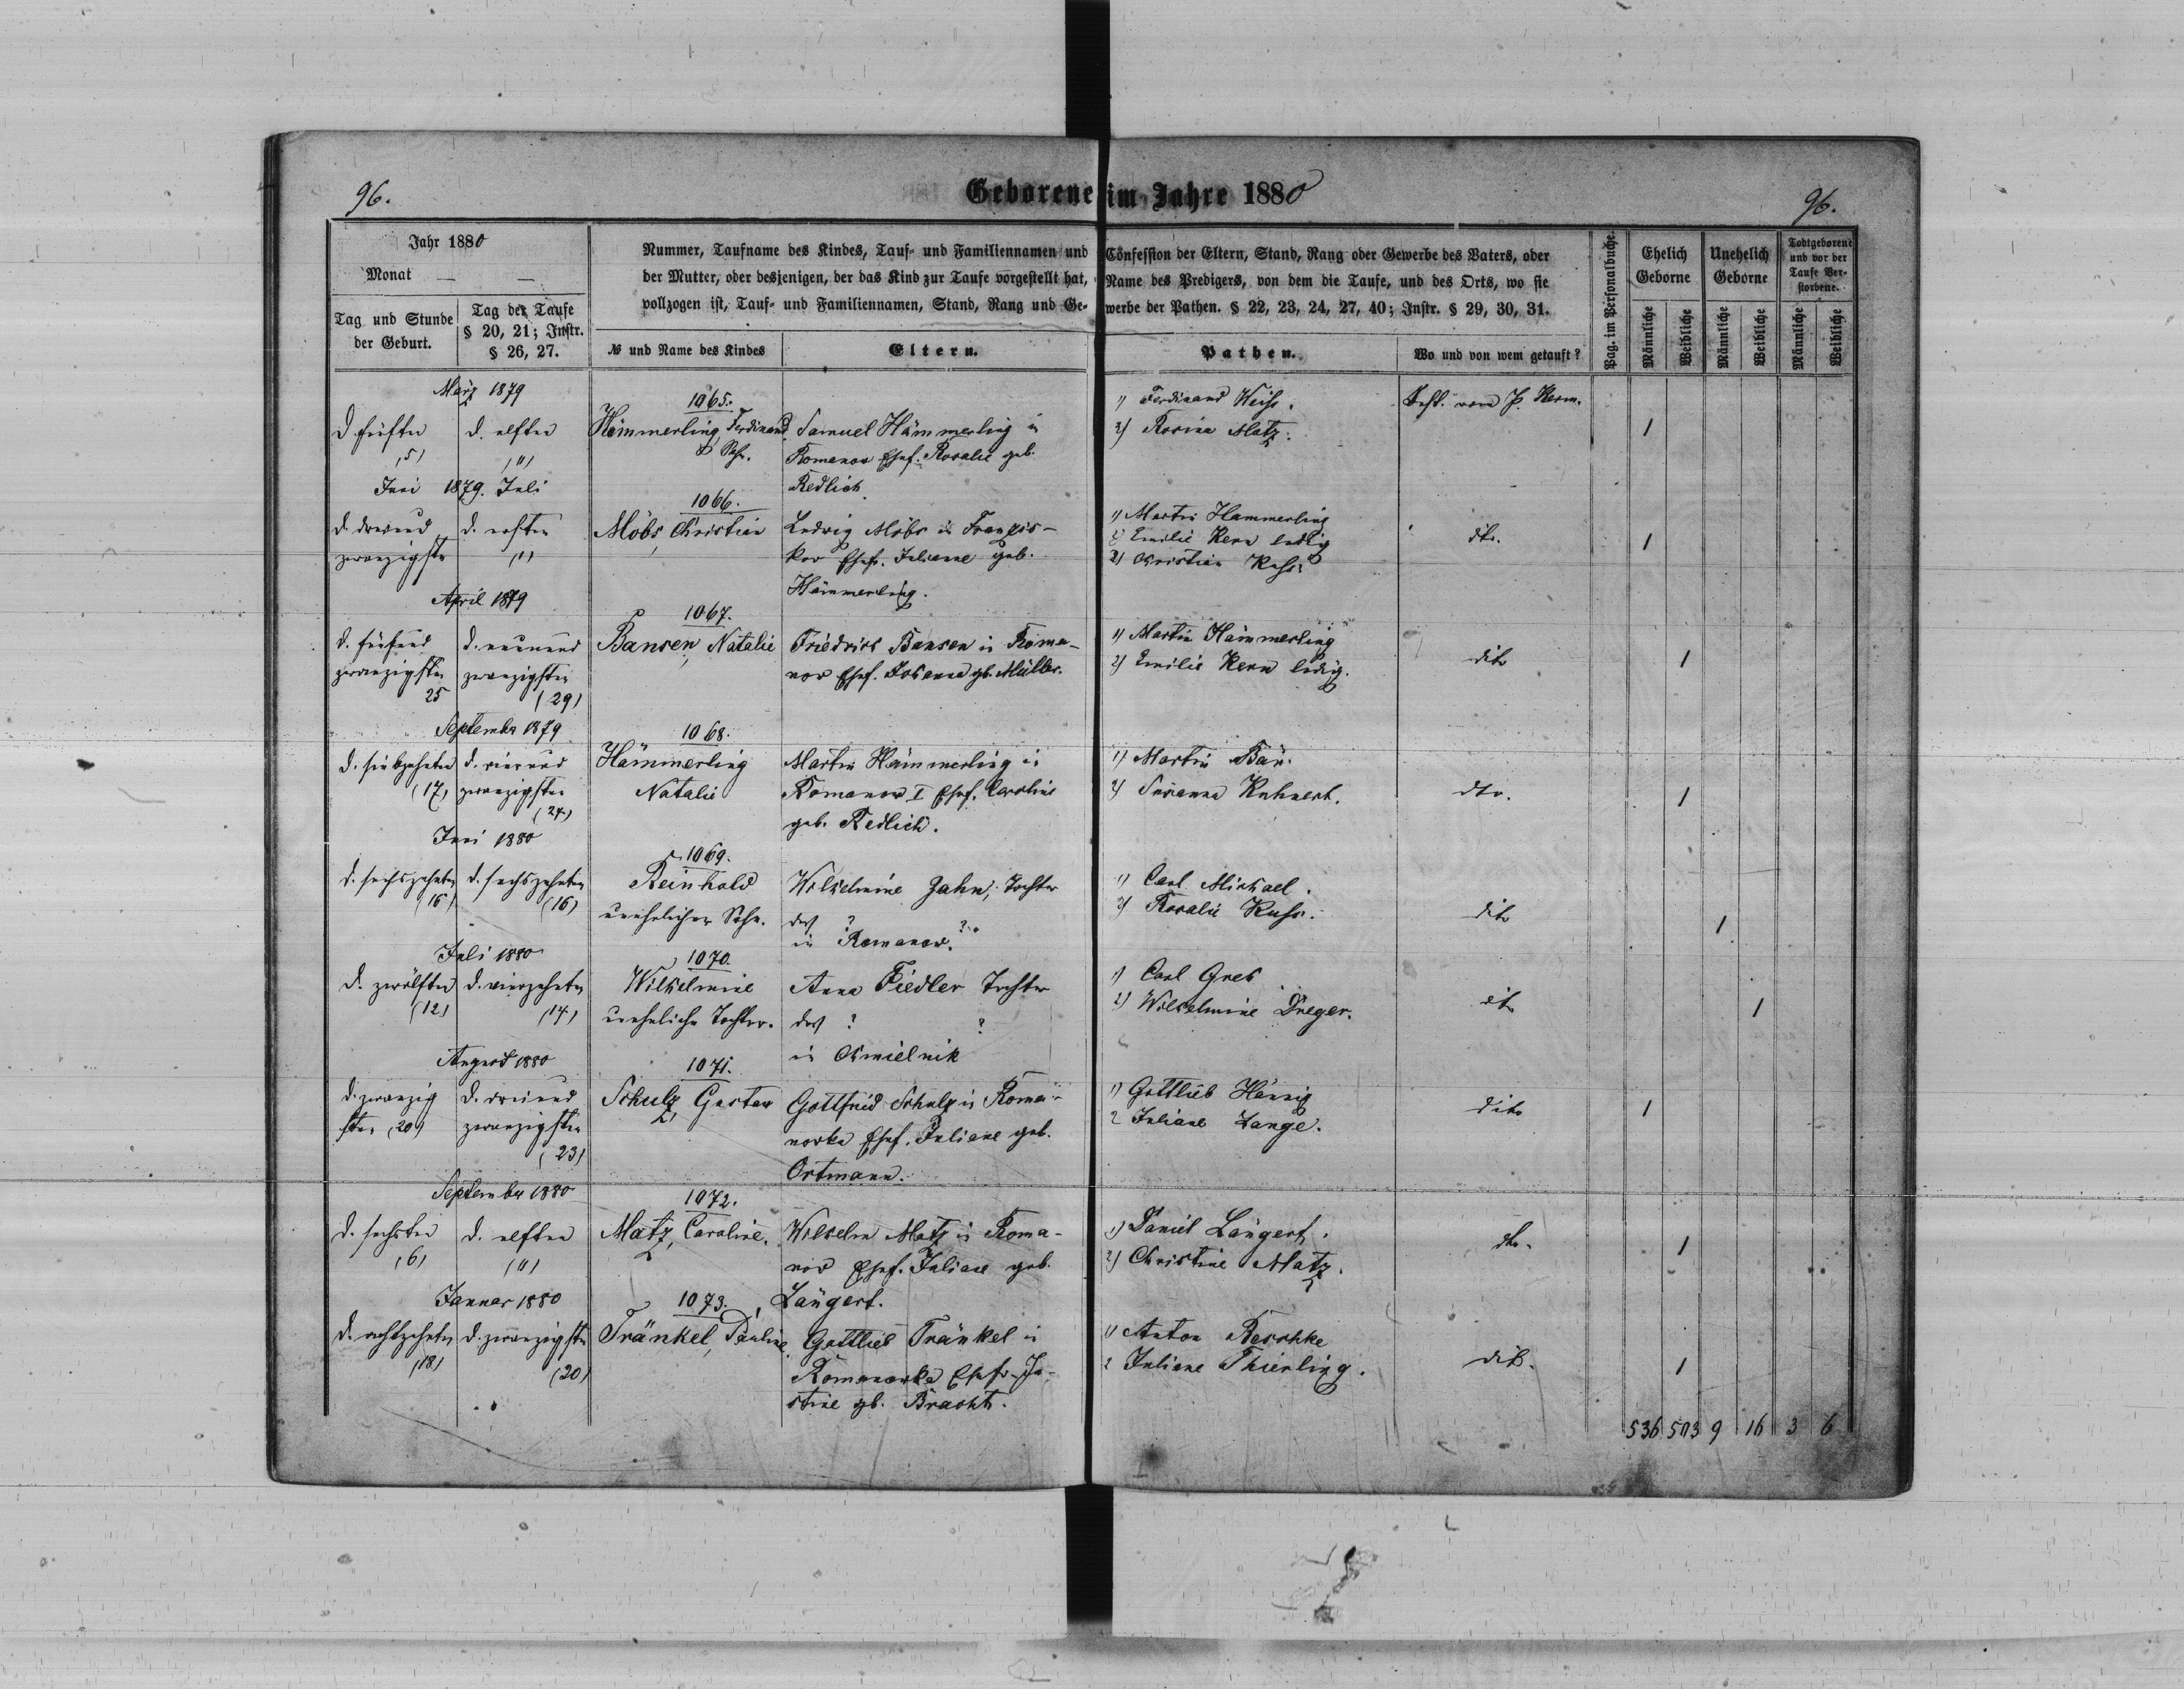 96.
Geborene im Jahre 1880
96.
Jahr 1880
Monat — —
Tag und Stunde der Geburt.
Tag der Taufe § 20, 21; Instr. § 26, 27.
Nummer, Taufname des Kindes, Tauf- und Familiennamen und Confession der Eltern, Stand, Rang oder Gewerbe des Vaters, oder
der Mutter, oder desjenigen, der das Kind zur Taufe vorgestellt hat, Name des Predigers, von dem die Taufe, und des Orts, wo sie
vollzogen ist, Tauf- und Familiennamen, Stand, Rang und Gewerbe der Pathen. § 22, 23, 24, 27, 40; Instr. § 29, 30, 31.
№ und Name des Kindes
Eltern.
Pathen.
Wo und von wem getauft?
Pag. im Personalbuche.
Ehelich Geborne
Unehelich Geborne
Todtgeborene und vor der Taufe Verstorbene.
Männliche
Weibliche
Männliche
Weibliche
Männliche
Weibliche
März 1879
d. fünften (5)
d. elften (11)
1065.
Hämmerling, Ferdinand
Samuel Hämmerling in
Romanow Ehef. Rosalie geb.
Redlich
1) Ferdinand Weiss.
2) Rosina Matz.
1
Juni 1879. Juli
d. dreiund
zwanzigsten
d. ersten
(1)
1066.
Möbs, Christian
Ludwig Möbs in Franzis-
kow Ehefr. Juliane geb.
Hämmerling.
1) Martin Hammerling
2) Emilie Kern ledig
3) Christian Kuss.
dto.
1
April 1879
d. fünfund
zwanzigsten
25
d. neunund
zwanzigsten
(29)
1067.
Bansen, Natalie
Friedrich Bansen in Roma-
now Ehef. Johanna gb. Müller.
1) Martin Hämmerling
2) Emilie Kern ledig.
dito
1
September 1879
d. siebzehnten
(17)
d. vierund
zwanzigsten
(24)
1068.
Hämmerling
Natalie
Martin Hämmerling in
Romanow I Ehef. Caroline
geb. Redlich.
1) Martin
2) Susanna Kuhnert.
dto.
1
Juni 1880
d. sechszehnten
(16)
d. sechszehnten
(16)
1069.
Reinhold
unehelicher Sohn.
Wilhelmine Zahn, Tochter
des ? ?
in Romanow.
1) Carl Michael.
2) Rosalie Kuss.
dito
1
Juli 1880
d. zwölften
(12)
d. vierzehnten
(14)
1070.
Wilhelmine
uneheliche Tochter.
Anna Fiedler Tochter
des ? ?
in Chmielnik
1) Carl
2) Wilhelmine Dreger.
dito
1
August 1880
d. zwanzig
sten (20)
d. dreiund
zwanzigsten
(23)
1071.
Schulz, Gustav
Gottfried Schulz in Roma-
nowka Ehef. Juliane geb.
Ortmann.
1) Gottlieb Hännig
2 Juliane Lange.
dito
1
September 1880
d. sechsten
(6)
d. elften
(11)
1072.
Matz, Caroline.
Wilhelm Matz in Roma-
now Ehef. Juliane geb.
Längert.
1) Daniel Längert.
2) Christine Matz.
dto.
1
Januar 1880
d. achtzehnten
(18)
d. zwanzigsten
(20)
1073.
Tränkel, Pauline.
Gottlieb Tränkel in
Romanowka Ehefr. Ju-
stine gb. Bracht.
1) Anton Reschke
2 Juliane Thierling.
dito.
1
536 503 9 16 3 6